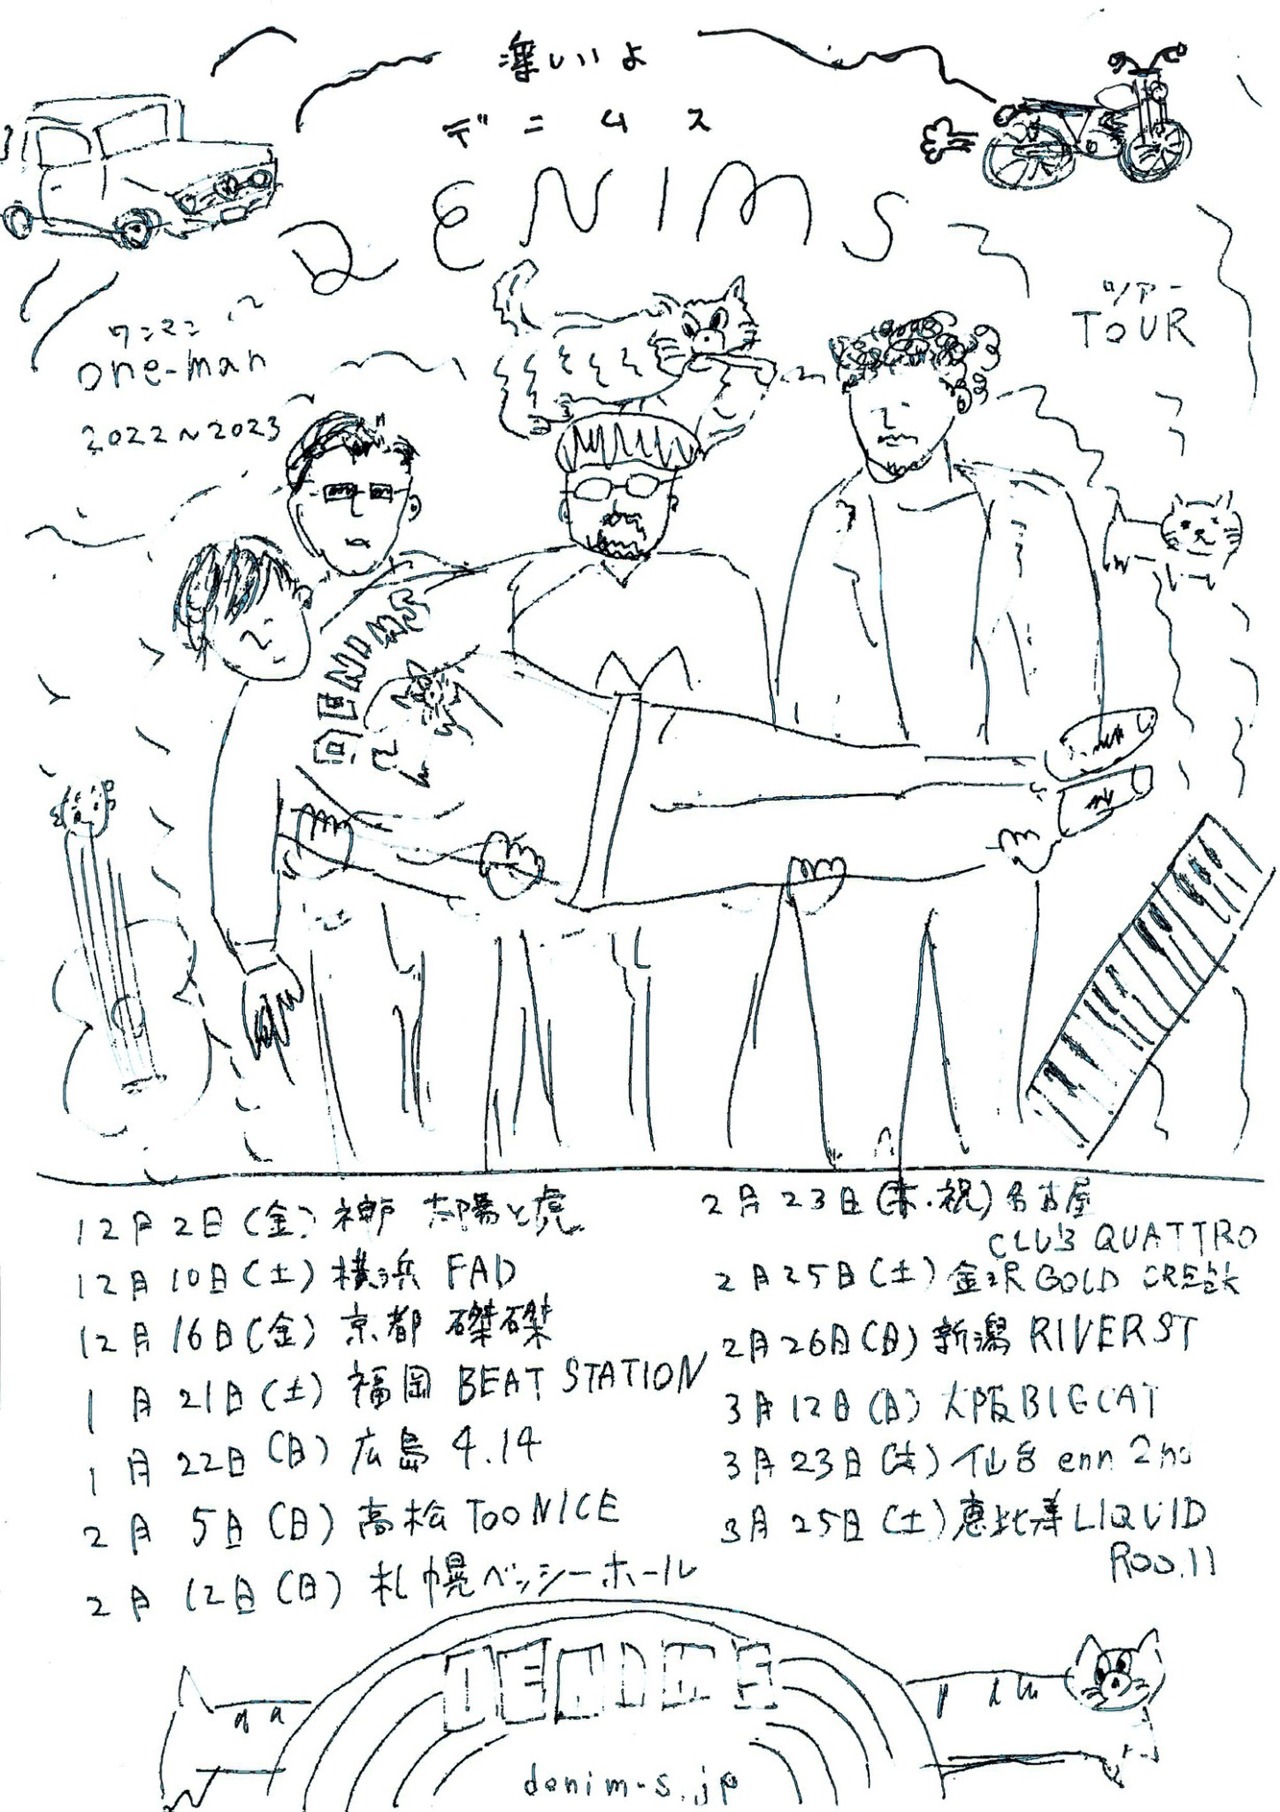 楽しいよ
デニムス
DENIMS
ワンマン
one-man
2022~2023
ツアー
TOUR
DENIMS
12月2日(金) 神戸 太陽と虎
12月10日(土) 横浜 FAD
12月16日(金) 京都 磔磔
1月21日(土) 福岡 BEAT STATION
1月22日(日) 広島 4.14
2月5日(日) 高松 TOONICE
2月12日(日) 札幌 ベッシーホール
2月23日(木・祝) 名古屋
CLUB QUATTRO
2月25日(土) 金沢 GOLD CREEK
2月26日(日) 新潟 RIVERST
3月12日(日) 大阪 BIGCAT
3月23日(木) 仙台 enn 2nd
3月25日(土) 恵比寿 LIQUID
ROOM
DENIMS
denim-s.jp